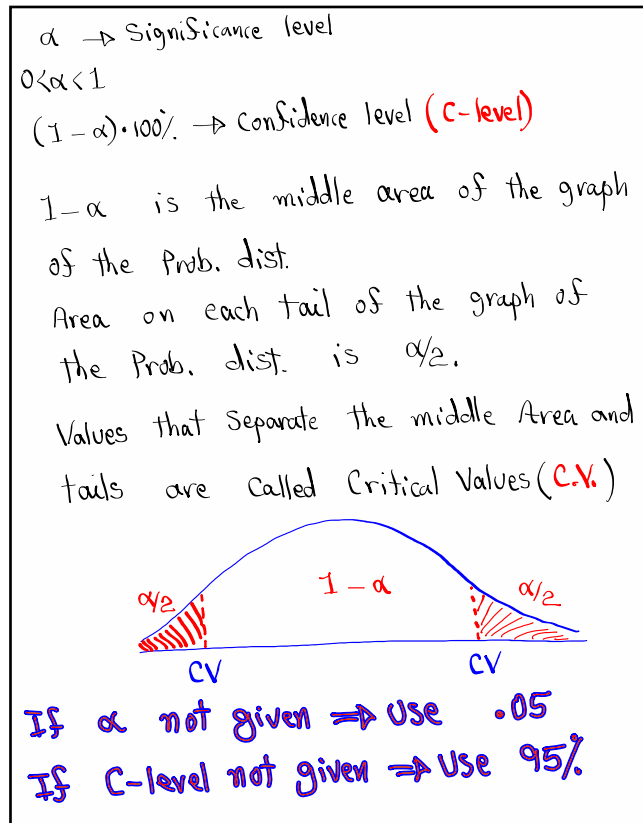 α → Significance level
0<α<1
(1-α)·100% → Confidence level (C-level)
1-α is the middle area of the graph
of the Prob. dist.
Area on each tail of the graph of
the Prob. dist. is α/2.
Values that Separate the middle Area and
tails are Called Critical Values (C.V.)
α/2 1-α α/2
CV CV
If α not given ⇒ Use .05
If C-level not given ⇒ Use 95%